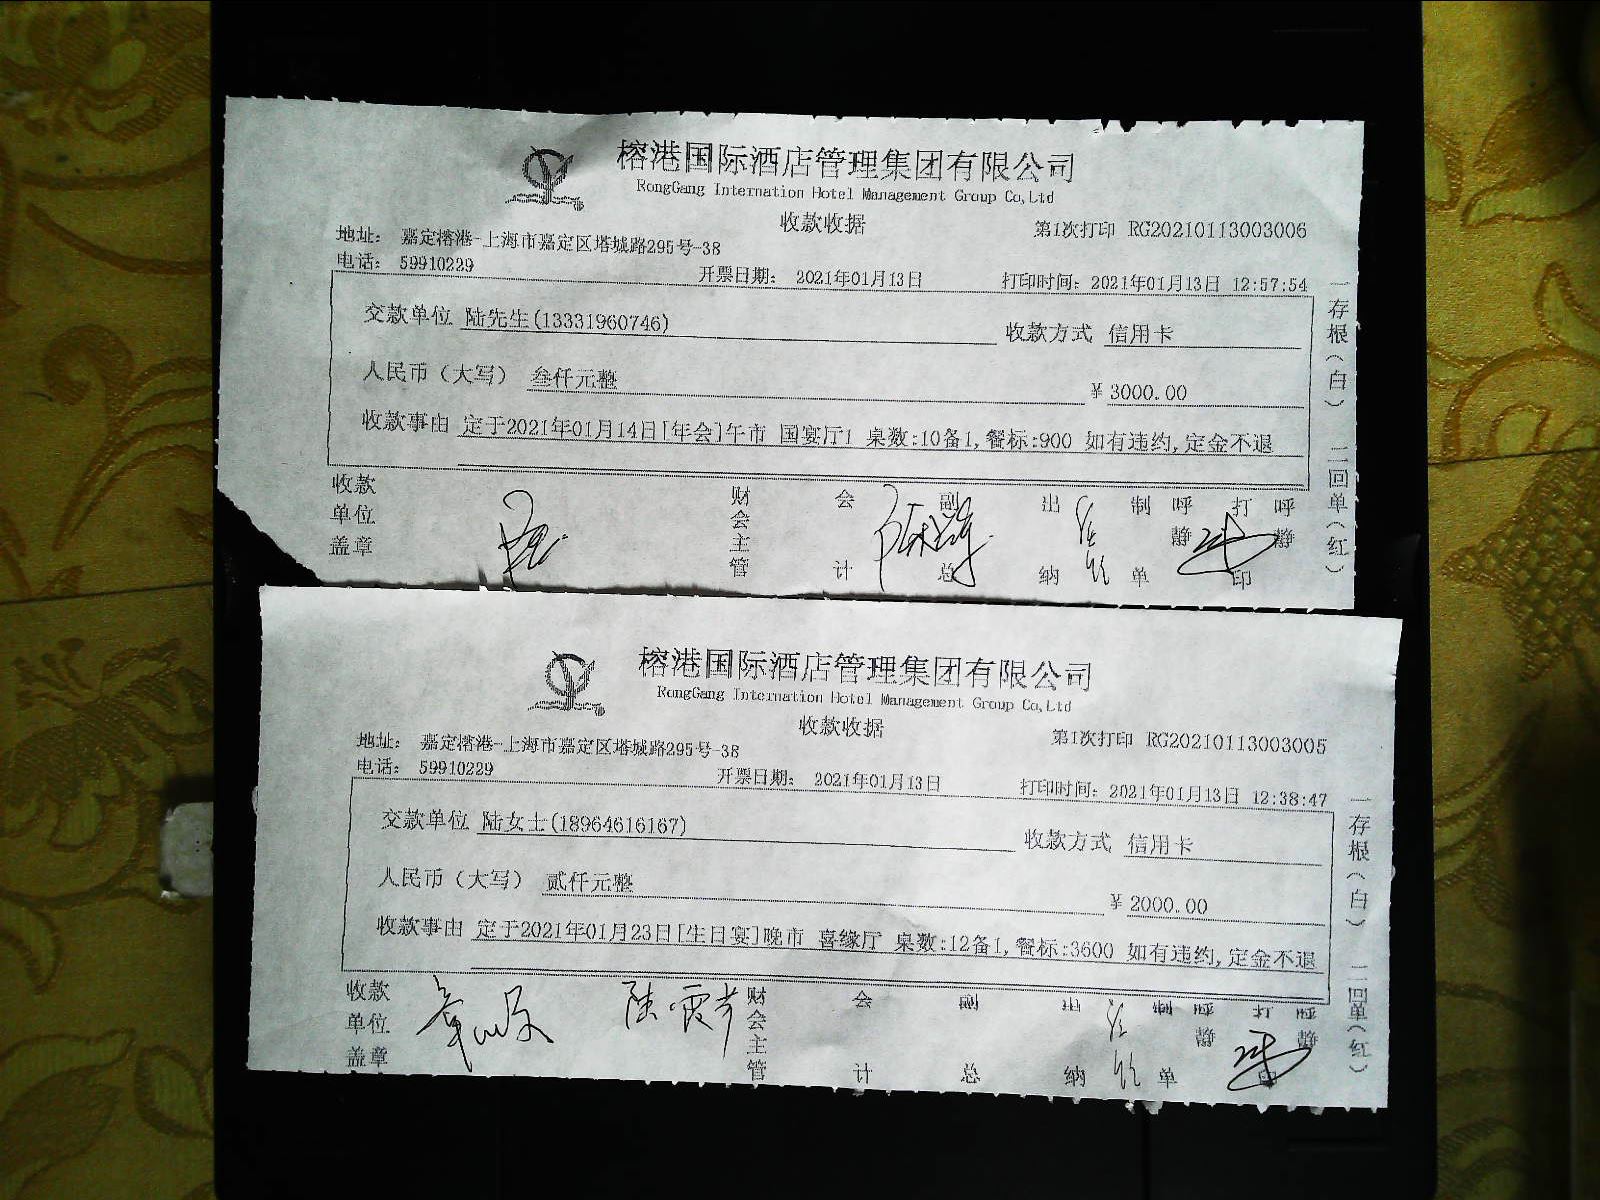 榕港国际酒店管理集团有限公司
RongGang Internation Hotel Management Group Co,Ltd
收款收据
第1次打印 RG20210113003006
地址： 嘉定榕港-上海市嘉定区塔城路295号-38
电话： 59910229
开票日期： 2021年01月13日
打印时间：2021年01月13日 12:57:54
交款单位 陆先生(13331960746)
收款方式 信用卡
人民币（大写） 叁仟元整
¥ 3000.00
收款事由 定于2021年01月14日[年会]午市 国宴厅1 桌数:10备1,餐标:900 如有违约,定金不退
收款单位盖章
财会主管
会计
副总
出纳
制单
呼静
打印
呼静
一存根（白） 二回单（红）
榕港国际酒店管理集团有限公司
RongGang Internation Hotel Management Group Co,Ltd
收款收据
第1次打印 RG20210113003005
地址： 嘉定榕港-上海市嘉定区塔城路295号-38
电话： 59910229
开票日期： 2021年01月13日
打印时间：2021年01月13日 12:38:47
交款单位 陆女士(18964616167)
收款方式 信用卡
人民币（大写） 贰仟元整
¥ 2000.00
收款事由 定于2021年01月23日[生日宴]晚市 喜缘厅 桌数:12备1,餐标:3600 如有违约,定金不退
收款单位盖章
财会主管
会计
总
纳
单
静
印
静
一存根（白） 二回单（红）